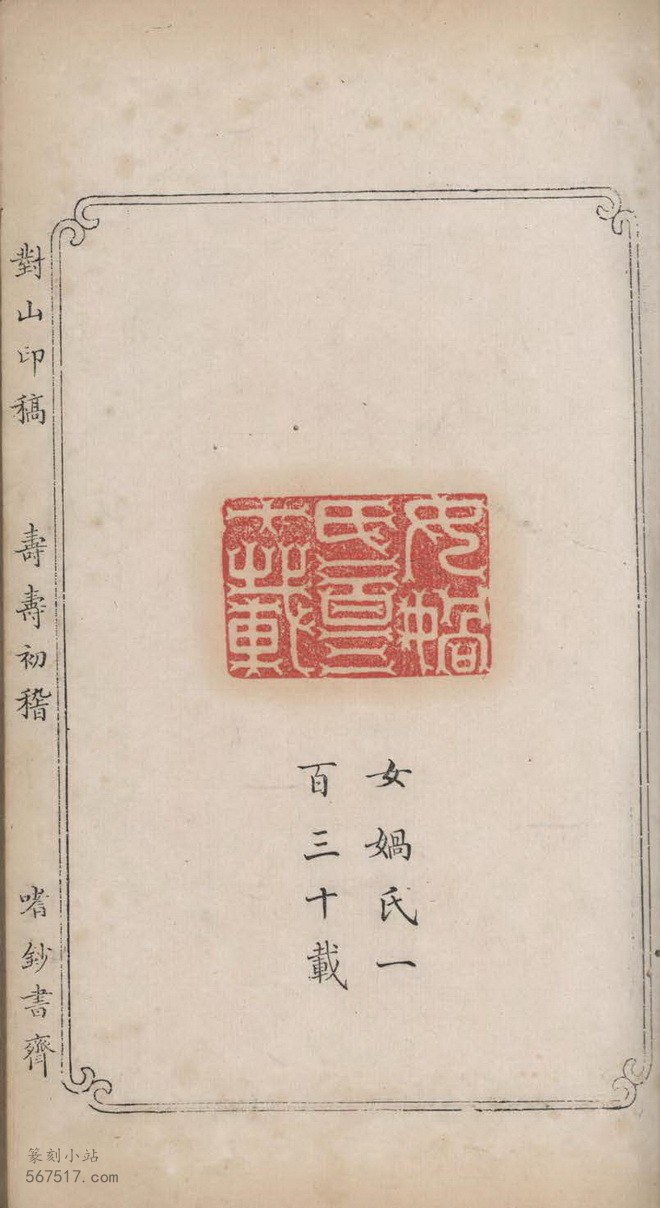 女媧氏一
百三十載
女媧
氏一百三
十載
對山印稿 壽壽初稽 嗜鈔書齋
篆刻小站
567517.com